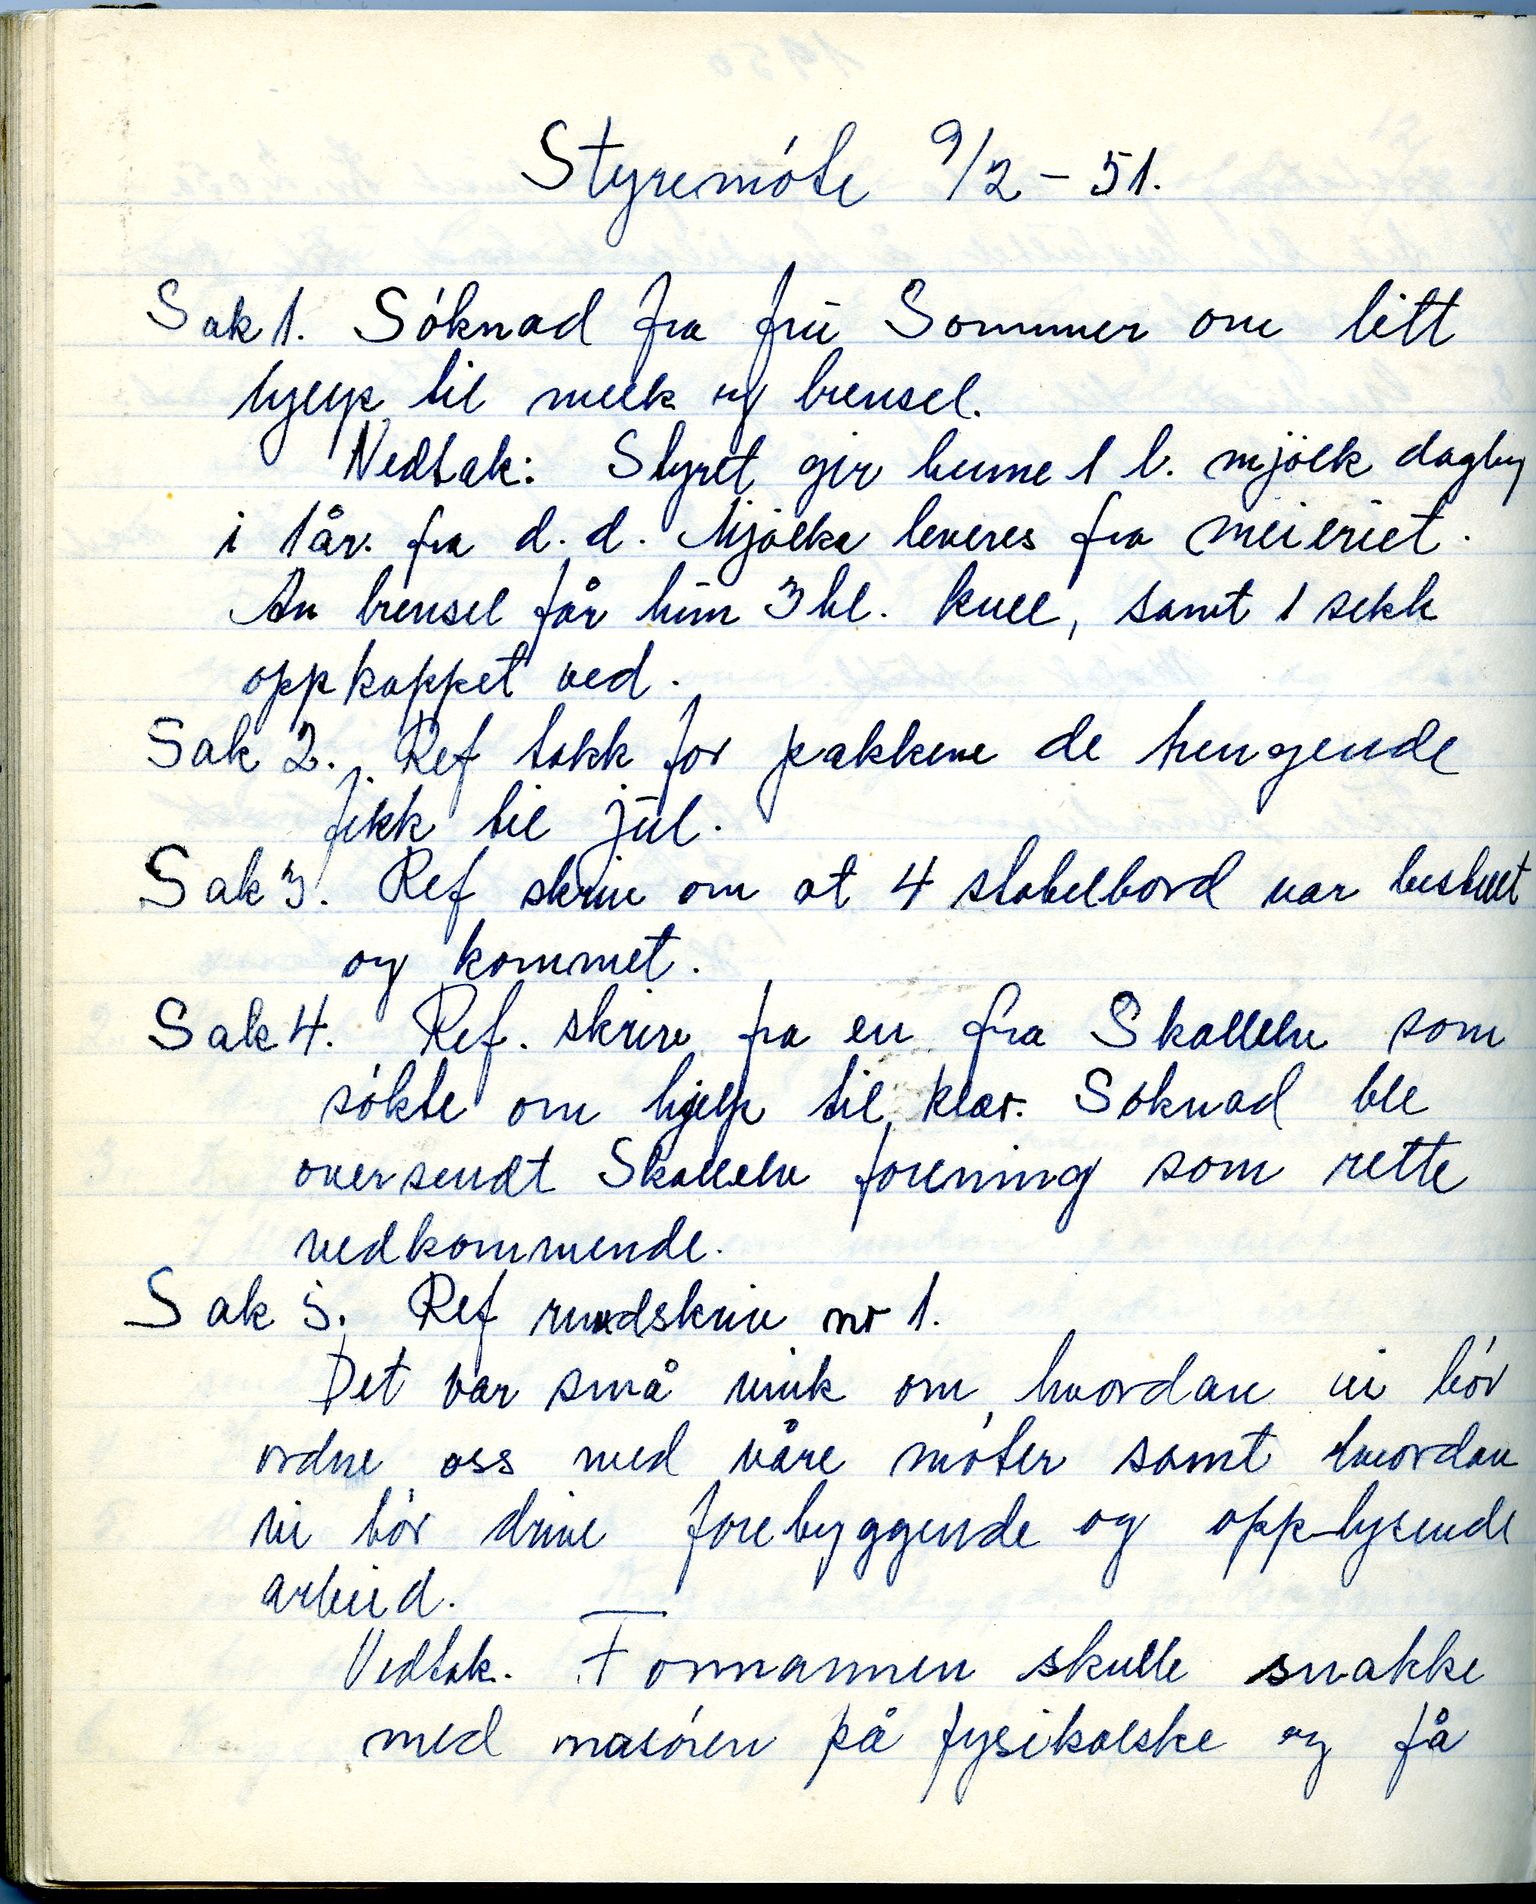 Styremöte 9/2 - 51.
Sak 1. Söknad fra fru Sommer om litt
hjelp til melk og brensel.
Vedtak: Styret gir henne 1 l. mjölk dagleg
i 1 år. fra d. d. Mjölka leveres fra meieriet.
Av brensel får hun 3 hl. kull, samt 1 sekk
oppkappet ved.
Sak 2. Ref takk for pakkene de trengende
fikk til jul.
Sak 3. Ref skriv om at 4 stabelbord var bestillt
og kommet.
Sak 4. Ref. skriv fra en fra Skallelv som
sökte om hjelp til klær. Söknad ble
oversendt Skallelv forening som rette
vedkommende.
Sak 5. Ref rundskriv nr 1.
Det var små vink om hvordan vi bör
ordne oss med våre möter samt hvordan
vi bör drive forebyggende og opplysende
arbeid.
Vedtak. Formannen skulle snakke
med masören på fysikalske og få